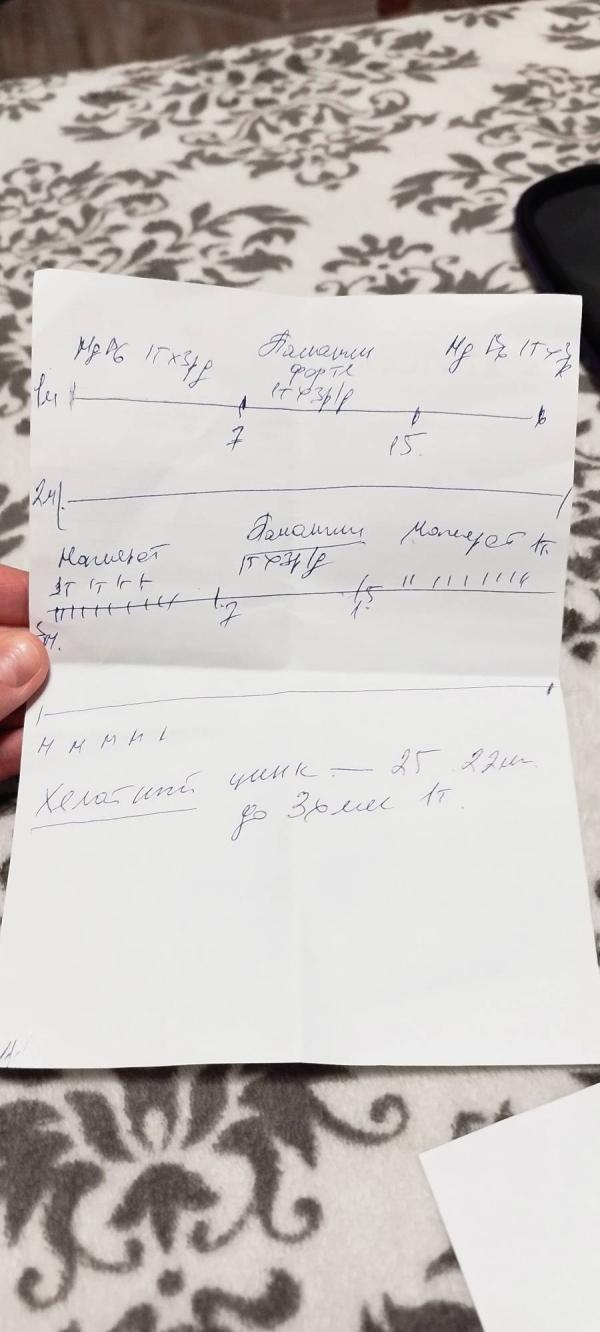 Mg B6 1т x 3р/д Панангин Mg B6 1т x 3р
форте
1м 1т x 3р/д
7 15
2м.
Панангин
1т x 3р/д
1т 1т 1т 1т
7 15
3м.
Хелатный цинк — 25 22мг.
до 3х мес 1т.